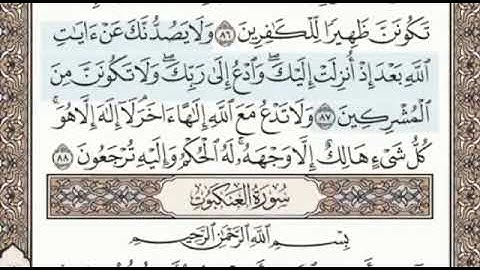 تَكُونَنَّ ظَهِيرًا لِّلْكَٰفِرِينَ ٨٦ وَلَا يَصُدُّنَّكَ عَنْ ءَايَٰتِ
ٱللَّهِ بَعْدَ إِذْ أُنزِلَتْ إِلَيْكَ ۖ وَٱدْعُ إِلَىٰ رَبِّكَ ۖ وَلَا تَكُونَنَّ مِنَ
ٱلْمُشْرِكِينَ ٨٧ وَلَا تَدْعُ مَعَ ٱللَّهِ إِلَٰهًا ءَاخَرَ ۘ لَآ إِلَٰهَ إِلَّا هُوَ ۚ
كُلُّ شَىْءٍ هَالِكٌ إِلَّا وَجْهَهُۥ ۚ لَهُ ٱلْحُكْمُ وَإِلَيْهِ تُرْجَعُونَ ٨٨
سُورَةُ العَنكَبُوتِ
بِسْمِ ٱللَّهِ ٱلرَّحْمَٰنِ ٱلرَّحِيمِ